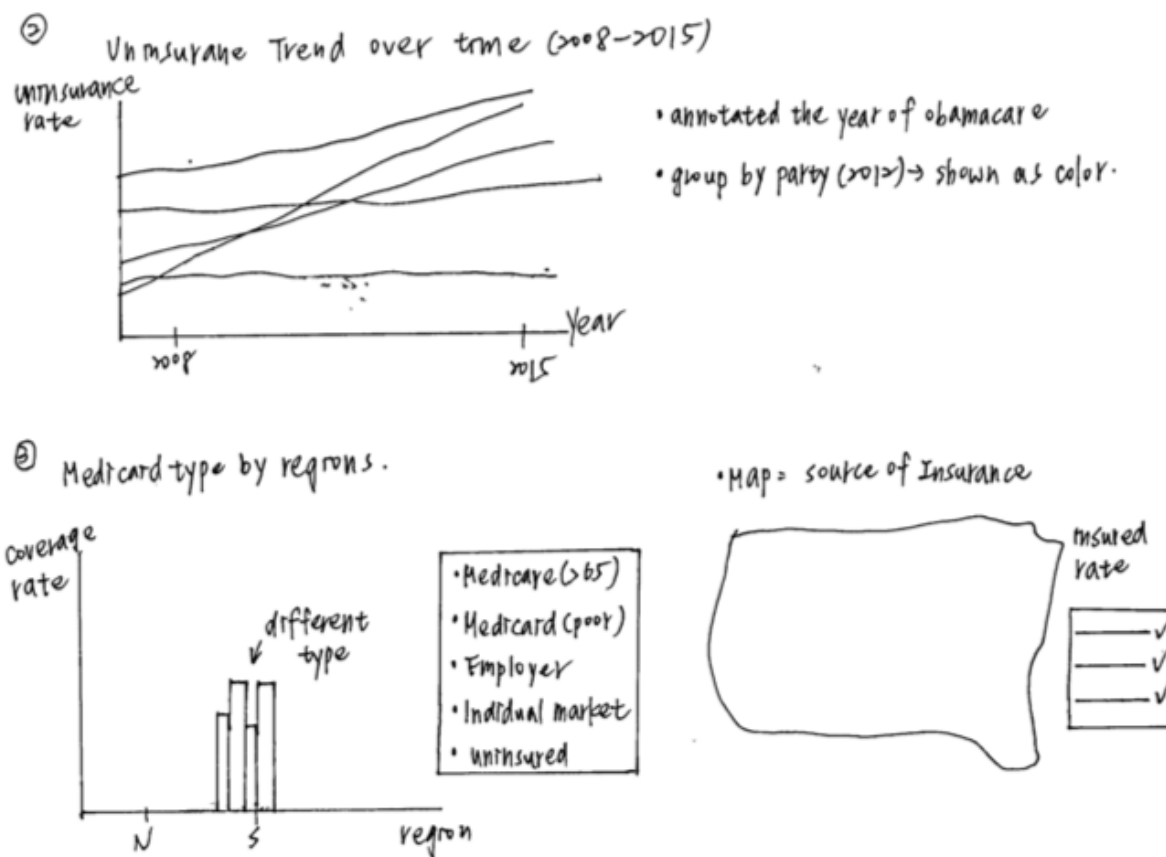 ②
Uninsurane Trend over time (2008-2015)
uninsurance
rate
• annotated the year of obamacare
• group by party (2012) → shown as color.
Year
2008
2015
③
Medicard type by regions.
coverage
rate
different
type
N
S
region
• Medicare (>65)
• Medicard (poor)
• Employer
• Individual market
• uninsured
• Map = source of Insurance
insured
rate